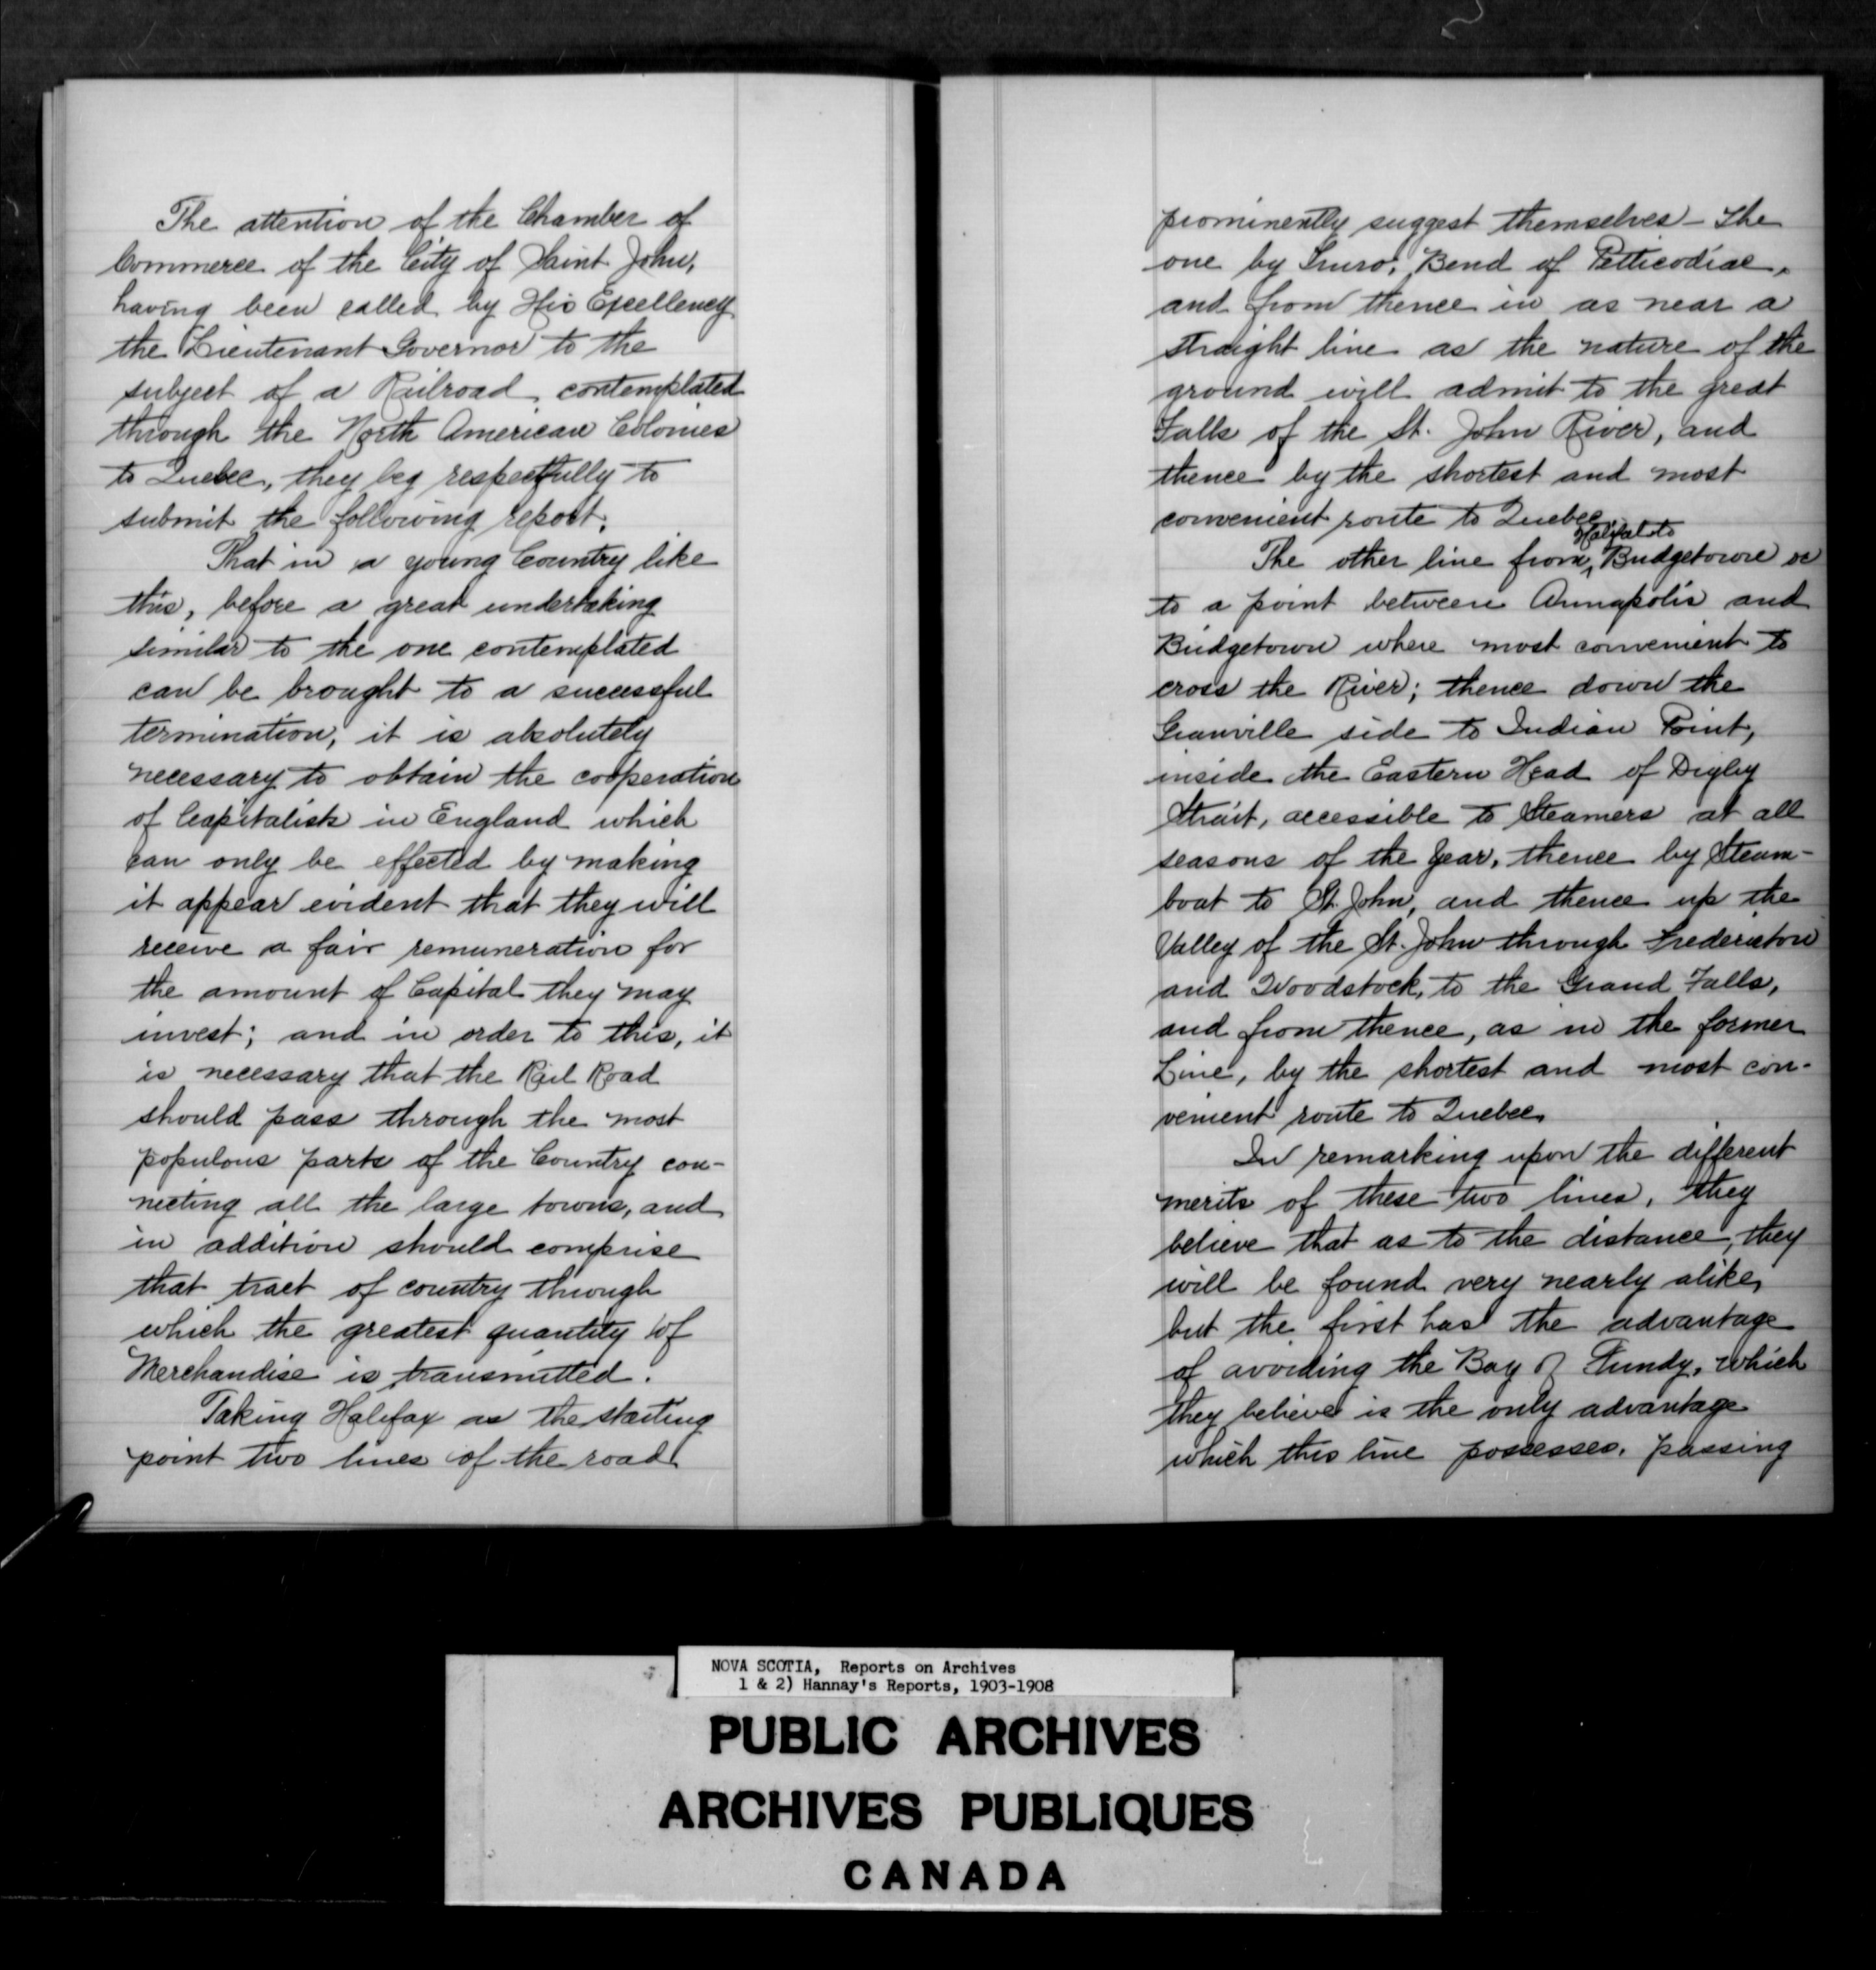 The attention of the Chamber of
Commerce of the City of Saint John,
having been called by His Excellency
the Lieutenant Governor to the
subject of a Railroad, contemplated
through the North American Colonies
to Quebec, they beg respectfully to
submit the following report.
That in a young Country like
this, before a great undertaking
similar to the one contemplated
can be brought to a successful
termination, it is absolutely
necessary to obtain the cooperation
of Capitalists in England which
can only be effected by making
it appear evident that they will
receive a fair remuneration for
the amount of Capital they may
invest; and in order to this, it
is necessary that the Rail Road
should pass through the most
populous parts of the Country con-
necting all the large towns, and
in addition should comprise
that tract of country through
which the greatest quantity of
Merchandise is transmitted.
Taking Halifax as the starting
point two lines of the road
prominently suggest themselves - The
one by Truro, Bend of Petticodiac,
and from thence in as near a
straight line as the nature of the
ground will admit to the great
Falls of the St. John River, and
thence by the shortest and most
convenient route to Quebec.
Halifax to
The other line from Bridgetown or
to a point between Annapolis and
Bridgetown where most convenient to
cross the River; thence down the
Granville side to Indian Point,
inside the Eastern Head of Digby
Strait, accessible to Steamers at all
seasons of the Year, thence by Steam-
boat to St. John, and thence up the
Valley of the St. John through Fredericton
and Woodstock, to the Grand Falls,
and from thence, as in the former
Line, by the shortest and most con-
venient route to Quebec.
In remarking upon the different
merits of these two lines, they
believe that as to the distance, they
will be found very nearly alike,
but the first has the advantage
of avoiding the Bay of Fundy, which
they believe is the only advantage
which this line possesses, passing
NOVA SCOTIA, Reports on Archives
1 & 2) Hannay's Reports, 1903-1908
PUBLIC ARCHIVES
ARCHIVES PUBLIQUES
CANADA